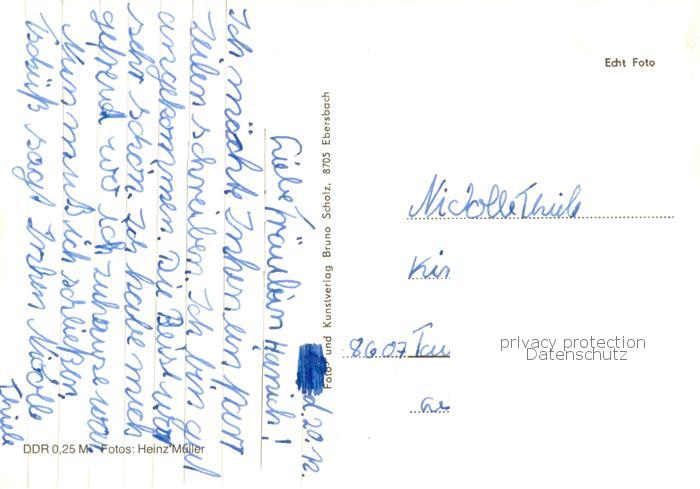 d. 20. 12.
Liebe Fräulein Hanich!
Ich möchte Ihnen ein paar
Zeilen schreiben. Ich bin gut
angekommen. Die Reise war
sehr schön. Ich habe mich
gefreud wo ich zuhause war
Nun muß ich schließen,
Tschüß sagt Ihnen Nicolle
Thiele
DDR 0,25 M Fotos: Heinz Müller
Foto- und Kunstverlag Bruno Scholz, 8705 Ebersbach
Echt Foto
Nicolle Thiele
Kir
8607 Tau
privacy protection
Datenschutz